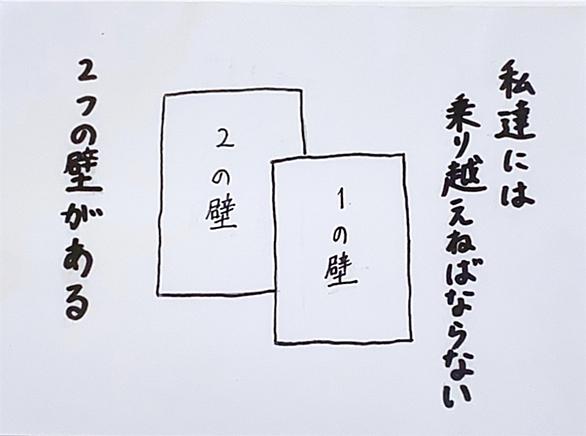 私達には
乗り越えねばならない
1の壁
2の壁
2つの壁がある